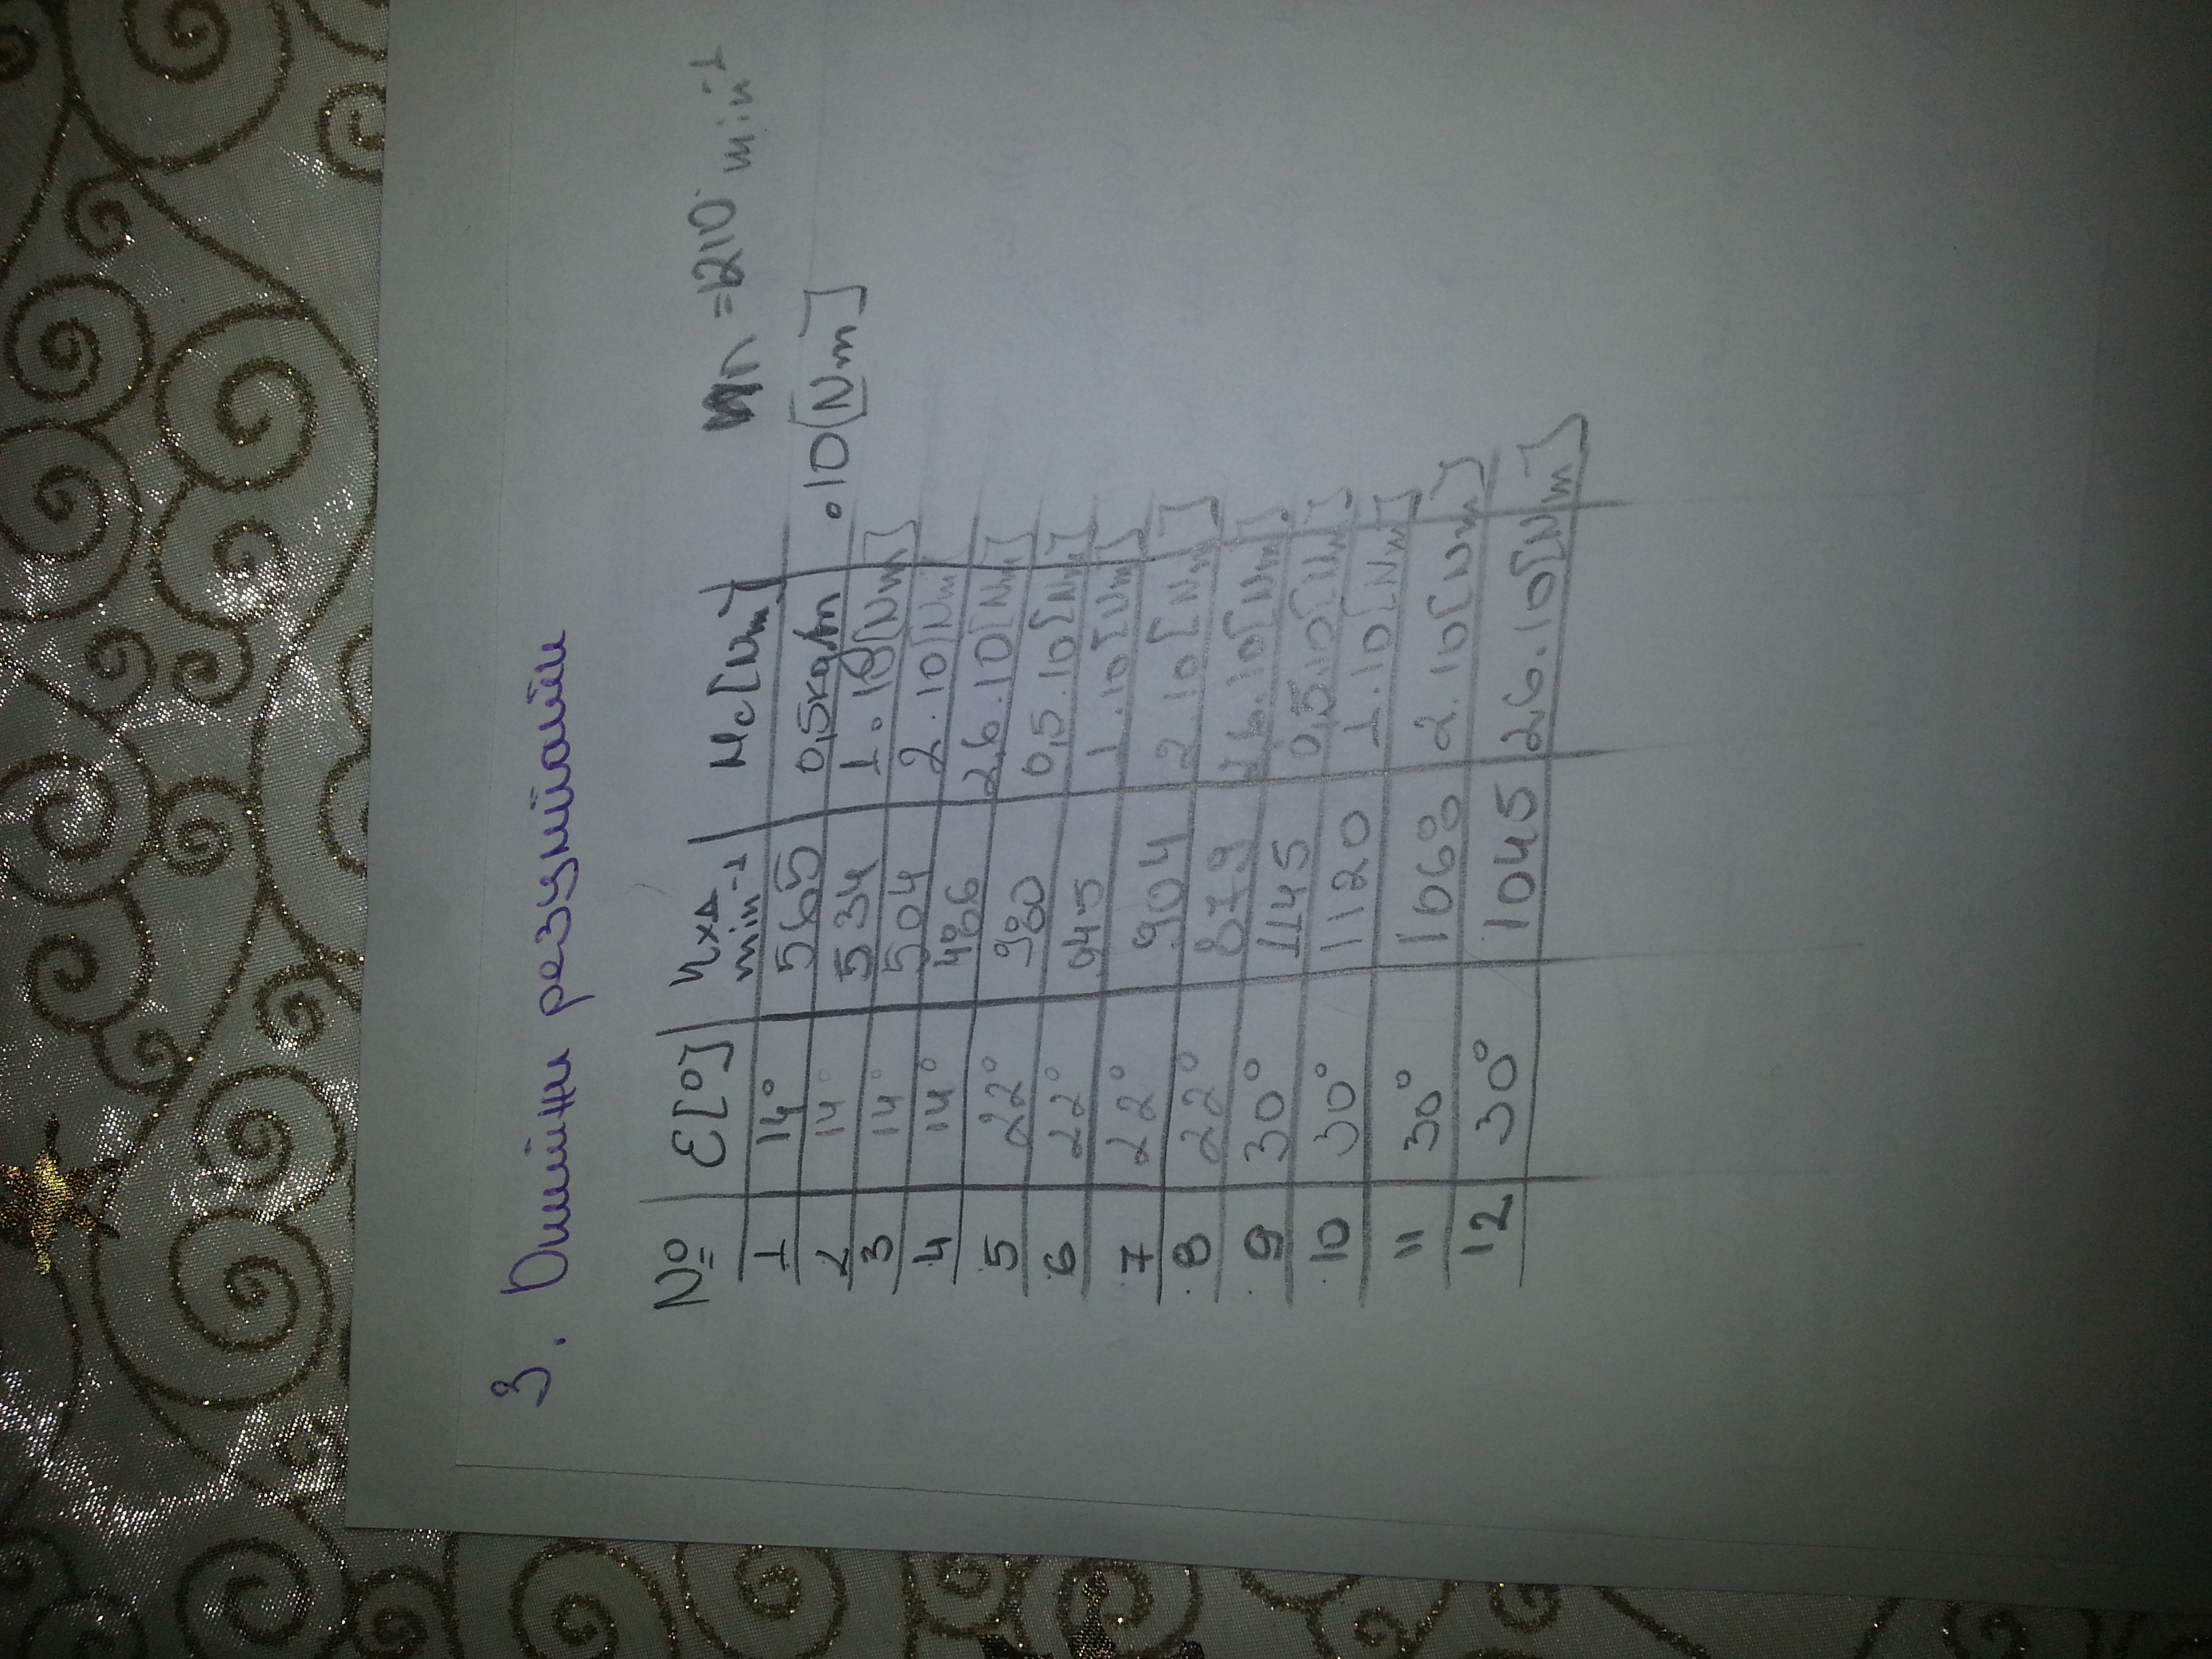 3. Опитни резултати
n = 1210 min-1
№ ε[°] nхд min-1 Mc[Nm]
1 14° 565 0,5 kg/m .10[Nm]
2 14° 534 1.10[Nm]
3 14° 504 2.10[Nm]
4 14° 486 2,6.10[Nm]
5 22° 980 0,5.10[Nm]
6 22° 945 1.10[Nm]
7 22° 904 2.10[Nm]
8 22° 879 2,6.10[Nm]
9 30° 1145 0,5.10[Nm]
10 30° 1120 1.10[Nm]
11 30° 1068 2.10[Nm]
12 30° 1045 2,6.10[Nm]